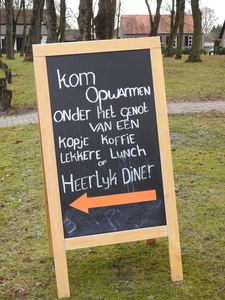 Kom
Opwarmen
Onder het genot
van een
Kopje Koffie
Lekkere Lunch
of
Heerlyk Diner